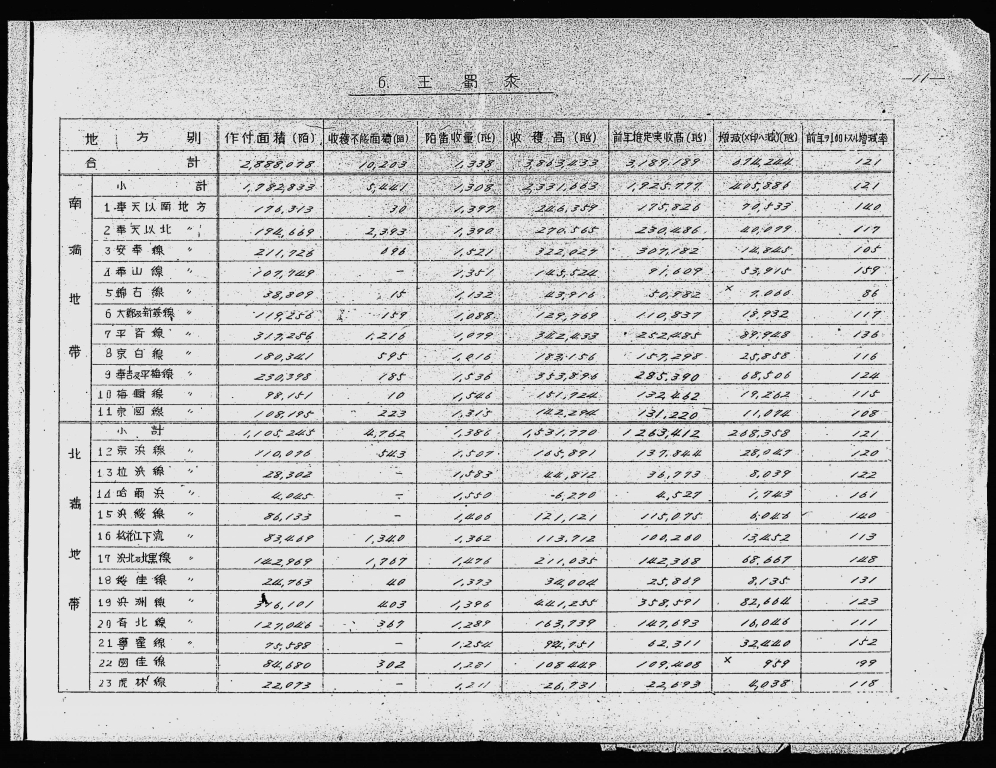 6. 玉蜀黍
—11—
地方別 作付面積(陌) 收穫不能面積(陌) 陌当收量(瓲) 收穫高(瓲) 前年推定実收高(瓲) 增減(×印ハ減)(瓲) 前年ヲ100トスル增減率
合計 2,888,078 10,203 1,338 3,863,433 3,189,189 674,244 121
南満地帶
小計 1,782,833 5,441 1,308 2,331,663 1,925,777 405,886 121
1 奉天以南地方 176,313 30 1,397 246,359 175,826 70,533 140
2 奉天以北 〃 194,669 2,393 1,390 270,565 230,486 40,079 117
3 安奉線 〃 211,726 696 1,521 322,027 307,182 14,845 105
4 奉山線 〃 107,749 － 1,351 145,524 91,609 53,915 159
5 錦古線 〃 38,809 15 1,132 43,916 50,982 ×7,066 86
6 大鄭及新義線 〃 119,256 159 1,088 129,769 110,837 18,932 117
7 平斉線 〃 317,256 1,216 1,079 342,433 252,485 89,948 136
8 京白線 〃 180,341 595 1,016 183,156 157,298 25,858 116
9 奉吉及平梅線 〃 230,398 185 1,536 353,896 285,390 68,506 124
10 梅輯線 〃 98,151 10 1,546 151,724 132,462 19,262 115
11 京図線 〃 108,195 223 1,315 142,294 131,220 11,074 108
北満地帶
小計 1,105,245 4,762 1,386 1,531,770 1,263,412 268,358 121
12 京浜線 〃 110,076 543 1,507 165,891 137,844 28,047 120
13 拉浜線 〃 28,302 － 1,583 44,812 36,773 8,039 122
14 哈爾浜 〃 4,045 － 1,550 6,270 4,527 1,743 161
15 浜綏線 〃 86,133 － 1,406 121,121 115,075 6,046 140
16 松花江下流 〃 83,469 1,340 1,362 113,712 100,260 13,452 113
17 浜北及北黒線 〃 142,969 1,767 1,476 211,035 142,368 68,667 148
18 綏佳線 〃 24,763 40 1,373 34,004 25,869 8,135 131
19 浜洲線 〃 316,101 403 1,396 441,255 358,591 82,664 123
20 斉北線 〃 127,046 367 1,289 163,739 147,693 16,046 111
21 寧霍線 〃 75,588 － 1,254 94,751 62,311 32,440 152
22 図佳線 84,680 302 1,281 108,449 109,408 ×959 99
23 虎林線 22,073 － 1,211 26,731 22,693 4,038 118